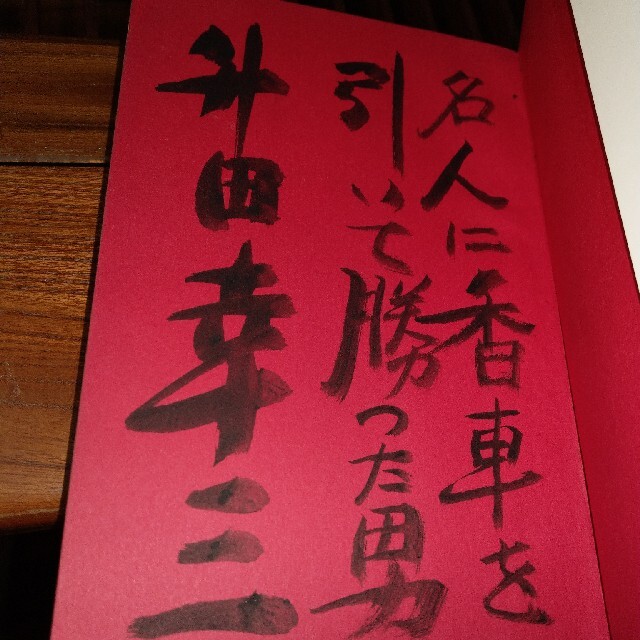 名人に香車を
引いて勝った男
升田幸三